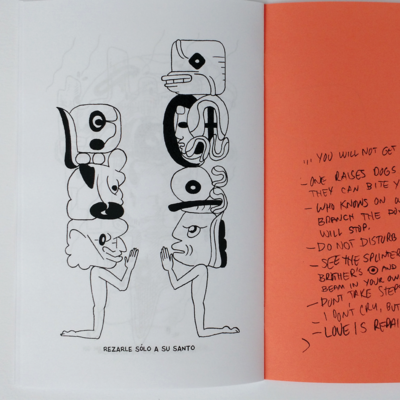 REZARLE SÓLO A SU SANTO
... YOU WILL NOT GET
- ONE RAISES DOGS
THEY CAN BITE Y
- WHO KNOWS ON
BRANCH THE
WILL STOP.
- DO NOT DISTURB
- SEE THE SPLINTER
BROTHER'S AND
BEAM IN YOUR OWN
- DON'T TAKE STEP
- I DON'T CRY, BUT
- LOVE IS REPAI